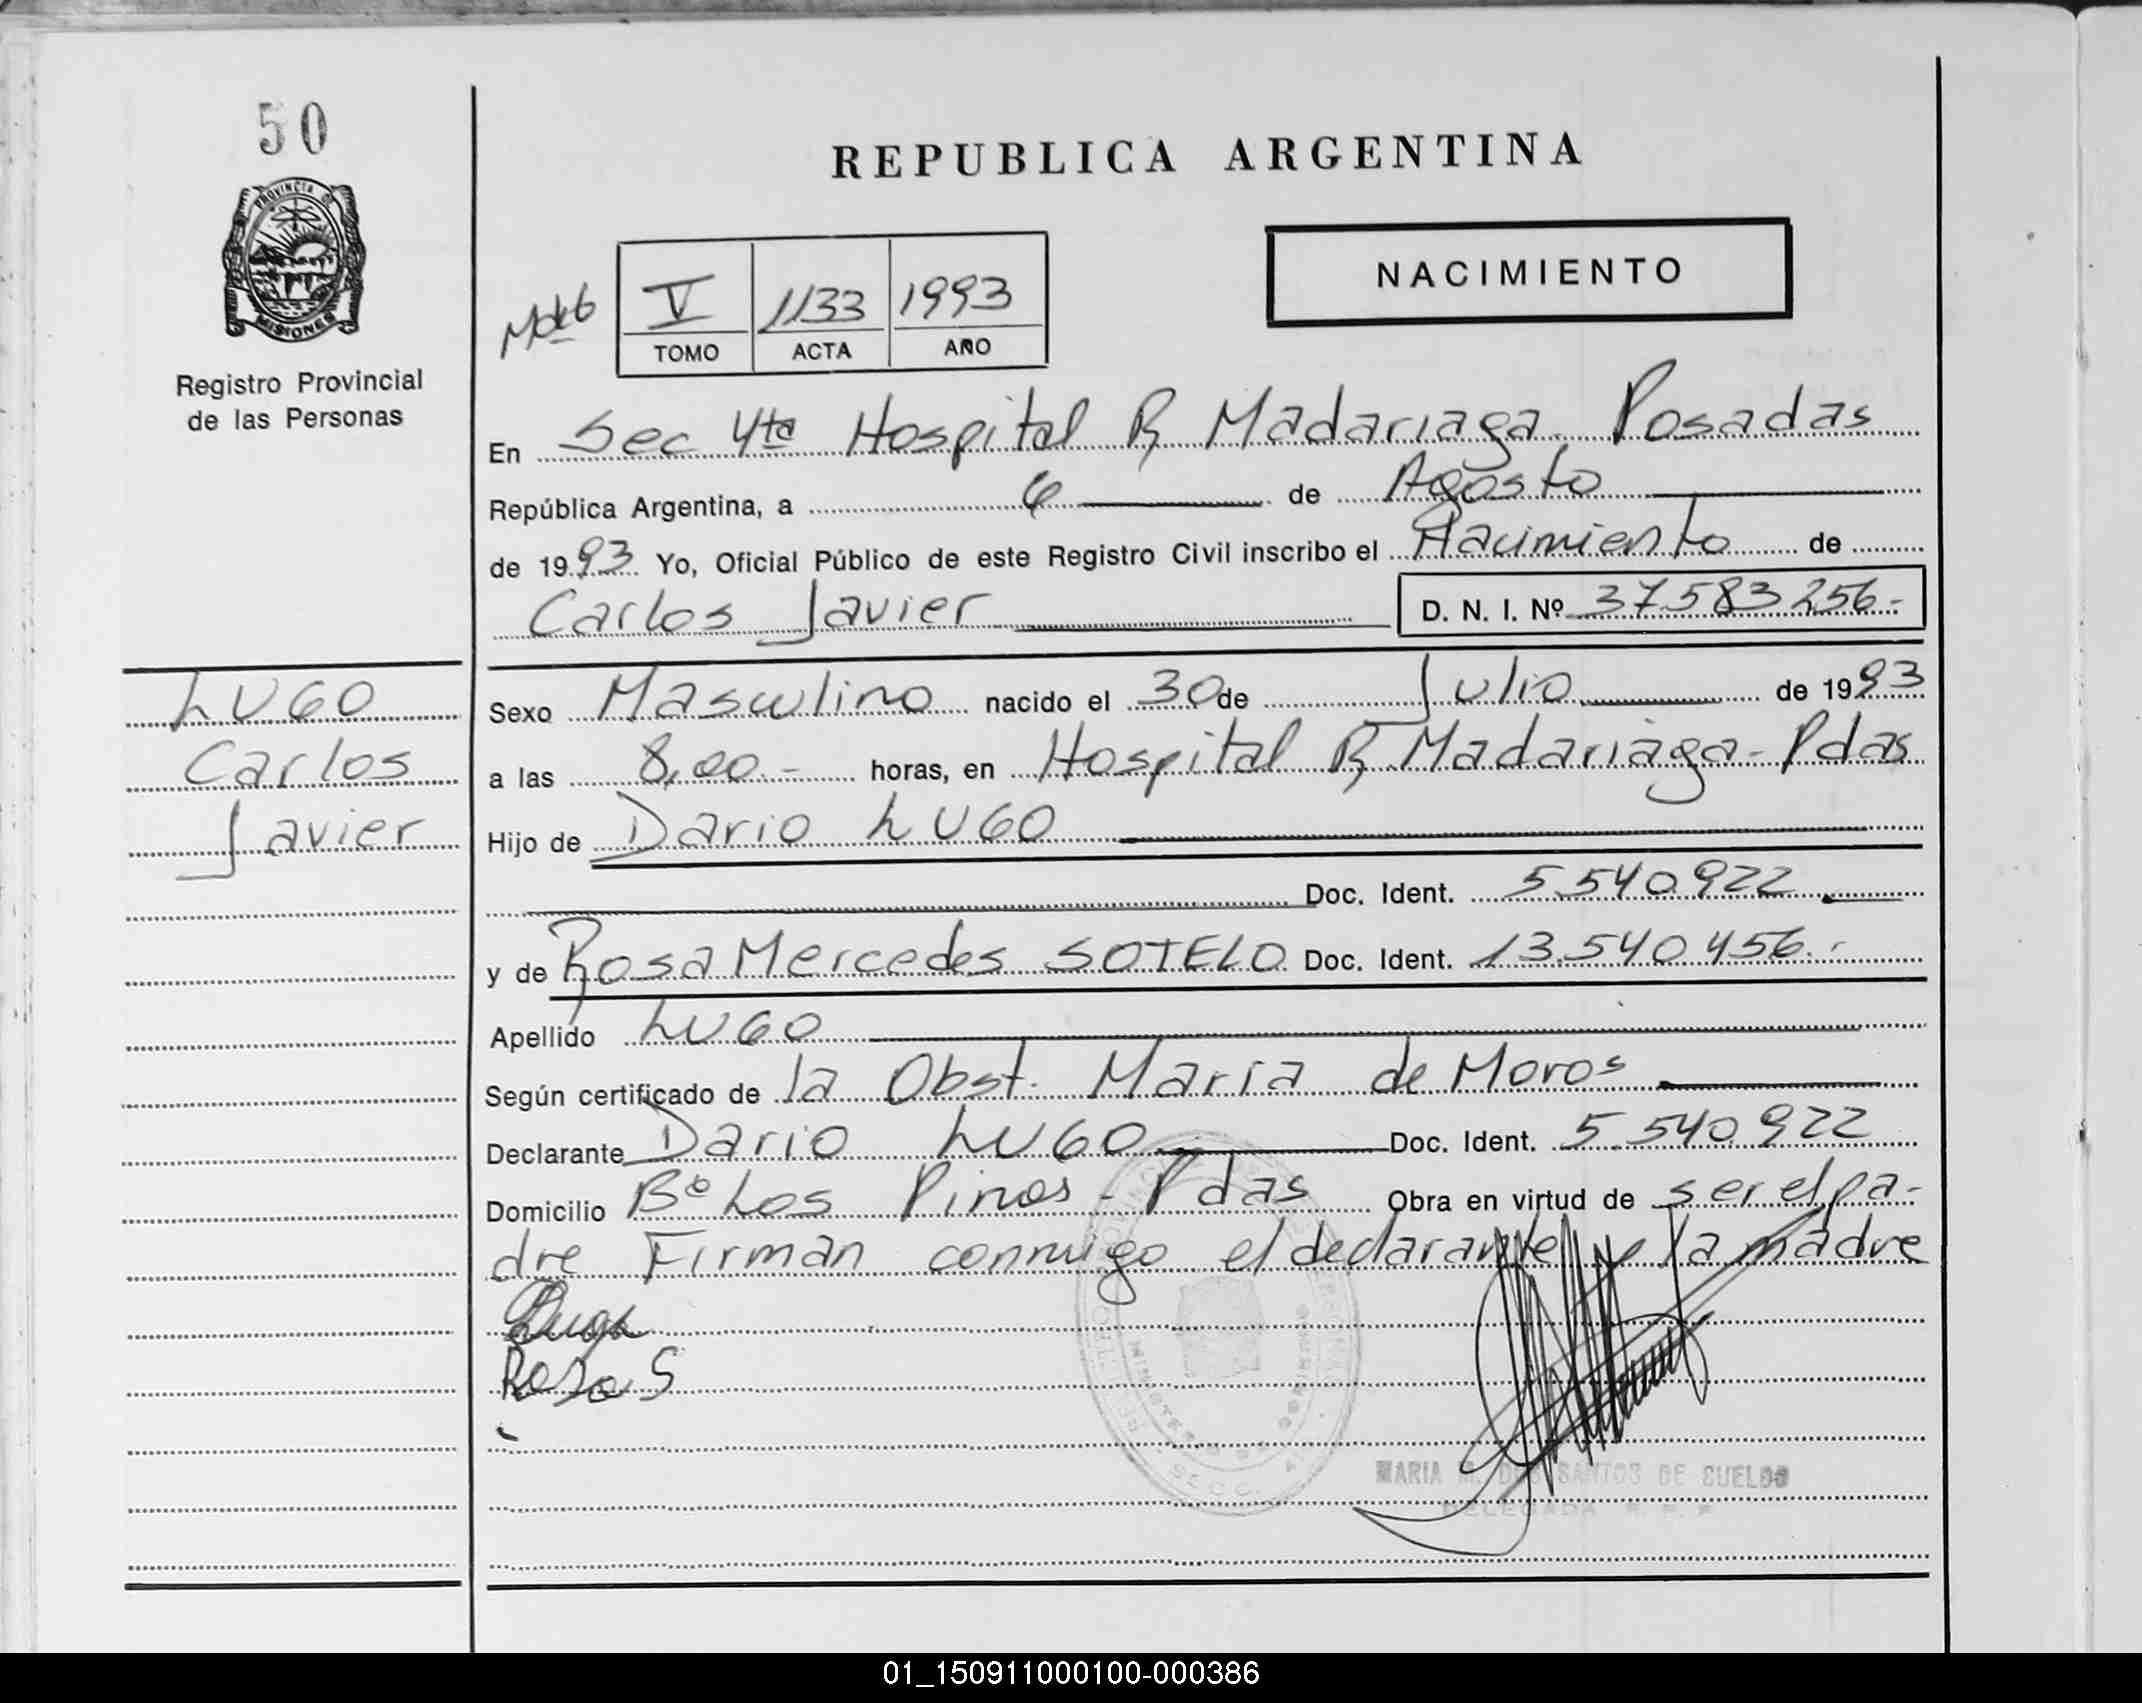 50
PROVINCIA DE
MISIONES
Registro Provincial
de las Personas
REPUBLICA ARGENTINA
NACIMIENTO
V 1133 1993
TOMO ACTA AÑO
En Sec 4ta Hospital R Madariaga Posadas
República Argentina, a 6 de Agosto
de 1993 Yo, Oficial Público de este Registro Civil inscribo el Nacimiento de
Carlos Javier D. N. I. Nº 37.583.256.-
LUGO
Carlos
Javier
Sexo Masculino nacido el 30 de Julio de 1993
a las 8,00.- horas, en Hospital R Madariaga - Pdas
Hijo de Dario LUGO
Doc. Ident. 5.540.922
y de Rosa Mercedes SOTELO Doc. Ident. 13.540.456.-
Apellido LUGO
Según certificado de la Obst. Maria de Moros
Declarante Dario LUGO Doc. Ident. 5.540.922
Domicilio Bº Los Pinos - Pdas Obra en virtud de ser el pa-
dre Firman conmigo el declarante y la madre
Rosa S
MARIA M. DOS SANTOS DE SUELDO
DELEGADA R. P. P.
01_150911000100-000386